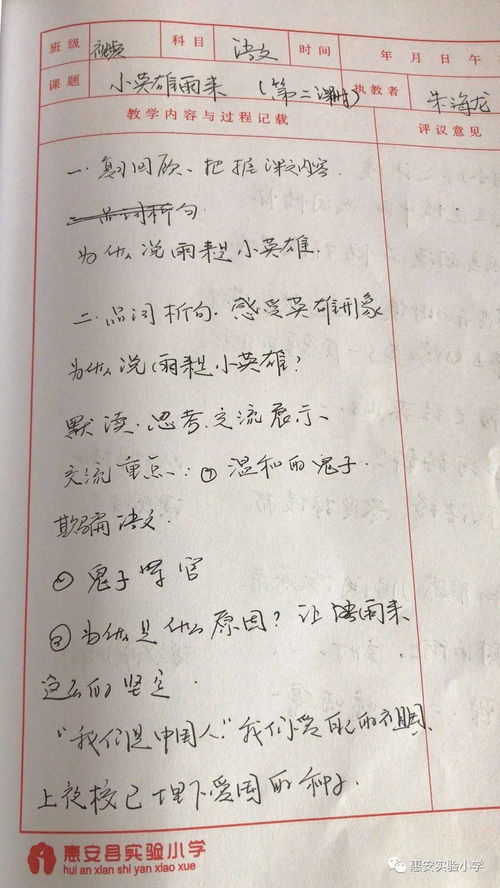 班级 视频 科目 语文 时间 年 月 日 午
课题 小英雄雨来（第二课时） 执教者 朱海龙
教学内容与过程记载 评议意见
一、复习回顾、把握课文内容.
二 品词析句.
为什么说雨来是小英雄.
二、品词析句. 感受英雄形象
为什么说雨来是小英雄?
默读、思考、交流展示、
交流重点、: ① 温和的鬼子.
欺骗语文.
② 鬼子军官
③ 为什么是什么原因? 让雨来
这么的坚定.
“我们是中国人” 我们爱自己的祖国、
上夜校已埋下爱国的种子.
惠安县实验小学
hui an xian shi yan xiao xue
惠安实验小学